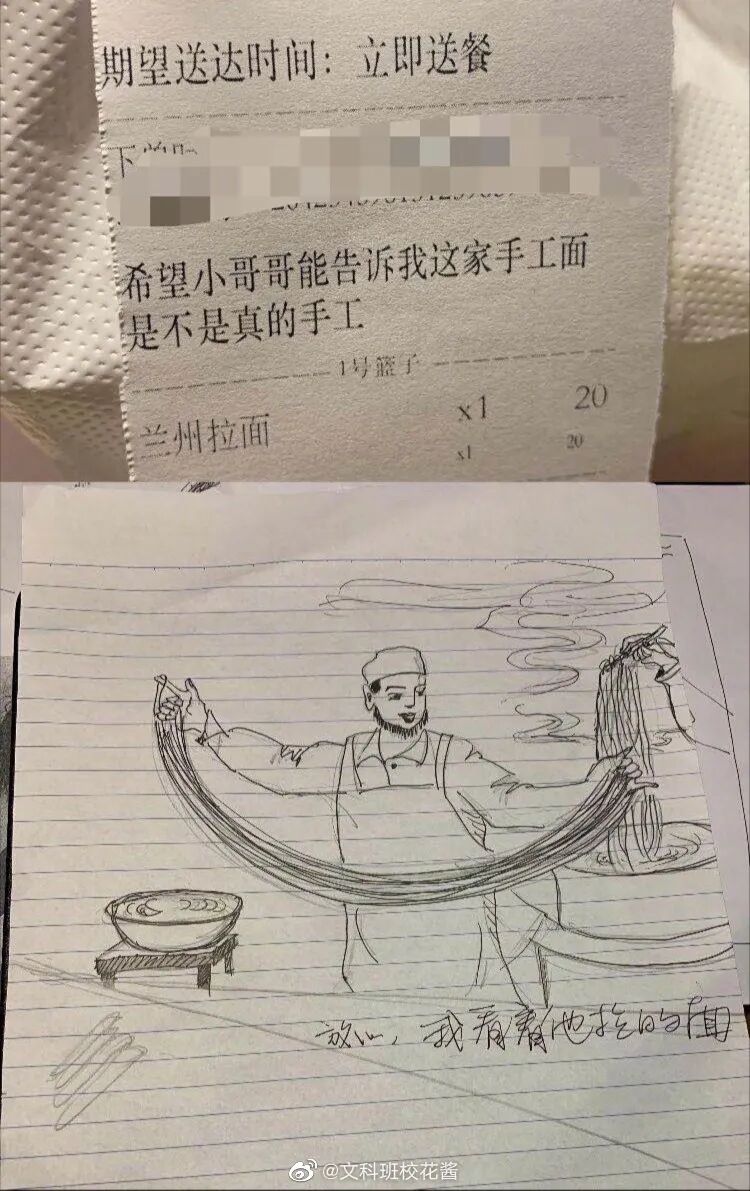 期望送达时间：立即送餐
希望小哥哥能告诉我这家手工面
是不是真的手工
1号篮子
兰州拉面 x1 20
x1 20
放心，我看着他拉的面
@文科班校花酱